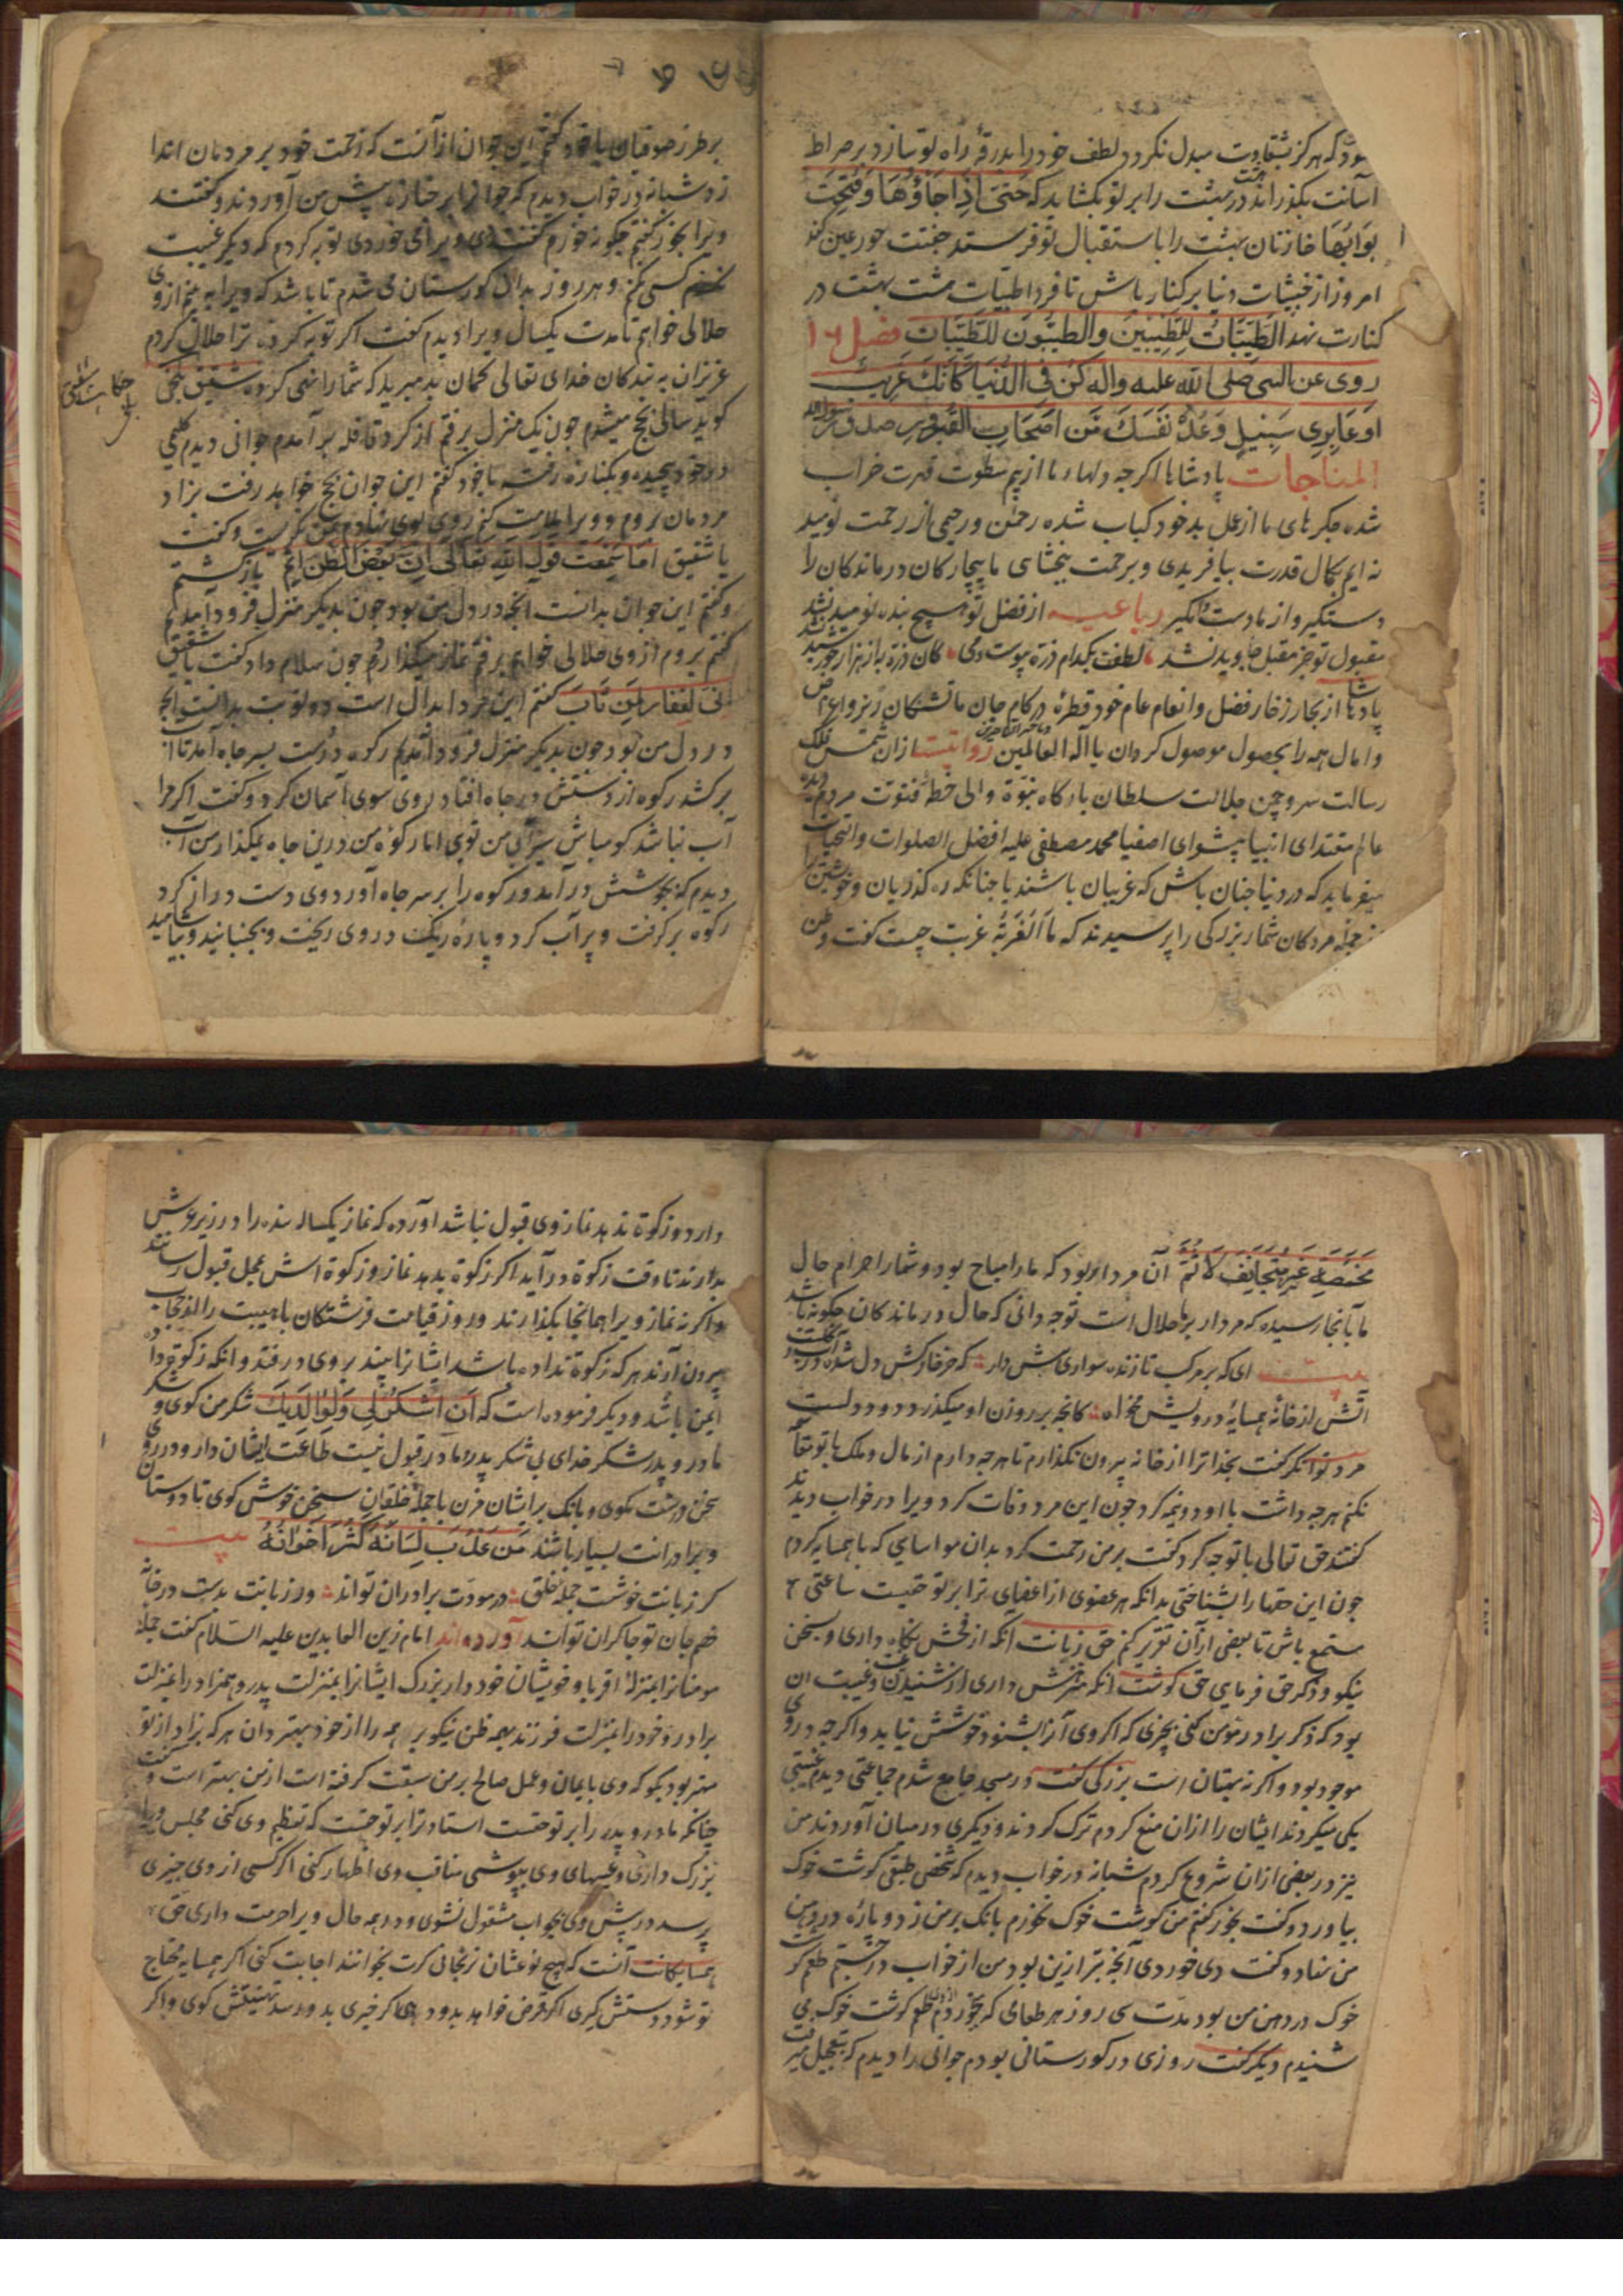 شود که هرگز بشقاوت مبدل نکردد لطف خود را بدرقهٔ راه تو سازد بر صراط
آسانت بگذراند در بهشت را بر تو بکشاید که حَتّیٰ اِذَا جَاؤُهَا وَفُتِحَت
اَبوَابُهَا خازنان بهشت را باستقبال تو فرستد جفتت حور عین کند
امروز از خبیثات دنیا بر کنار باش تا فردا طیبات هشت بهشت در
کنارت نهد الطَّیِّبَاتُ لِلطَّیِّبِینَ وَالطَّیِّبُونَ لِلطَّیِّبَاتِ فصل ۱۶
روی عن النبی صلی الله علیه واله کُن فِی الدُّنیَا کَاَنَّکَ غَرِیبٌ
اَو عَابِرِی سَبِیلٍ وَعُدَّ نَفسَکَ مِن اَصحَابِ القُبُورِ صدق رسول الله
المناجات پادشاها اکرچه دلهاء ما از بیم سطوت قهرت خراب
شده جکرهای ما از عمل بد خود کباب شده رحمٰن و رحیمی از رحمت نومید
نه ایم بکمال قدرت بیافریدی و برحمت ببخشای ما بیچارکان درماندکان را
دستگیر و از ما دست مگیر رباعیه از فضل تو هیچ بنده نومید نشد
مقبول تو جز مقبل جاوید نشد لطفت بکدام ذره پیوست دمی کان ذره به از هزار خورشید نشد
پادشاها از بحار زخار فضل وانعام عام خود قطرهٔ در کام جان ما تشنکان ریز واغراض
وامال همه را بحصول موصول کردان یا اله العالمین روایتست ازان شمس فلک
رسالت سرو چمن جلالت سلطان بارکاه نبوة والی خطهٔ فتوت مردم دیدهٔ
عالم مقتدای انبیا پیشوای اصفیا محمد مصطفی علیه افضل الصلوات والتحیات
میفرماید که در دنیا چنان باش که غریبان باشند یا چنانکه ره کذریان و خویشتن را
از جمله مردکان شمار بزرکی را پرسیدند که مَا الغُربَةُ غربت چیست کفت وطن
بر طرز صوفیان با خود کفتم این جوان از آنست که زحمت خود بر مردمان اندا
زد شبانه در خواب دیدم که جوانرا بر جنازه پیش من آوردند و کفتند
ویرا بخور کفتم چکونه خورم کفتند دی ویرا می خوردی توبه کردم که دیکر غیبت
کسی نکنم و هر روز بدان کورستان می شدم تا باشد که ویرا به بینم از وی
حلالی خواهم تا مدت یکسال ویرا دیدم کفت اکر توبه کردهٔ ترا حلال کردم
عزیزان به بندکان خدای تعالی کمان بد مبرید که شما را نهی کرده شقیق بلخی
حکایت شقیق بلخی
کوید سالی بحج میشدم چون یک منزل برفتم از کرد قافله برآمدم جوانی دیدم کلیمی
در خود پیچیده و بکناره رفته با خود کفتم این جوان بحج خواهد رفت بزاد
مردمان بروم و ویرا ملامت کنم روی بوی نهادم بمن نکریست و کفت
یا شقیق اَمَا سَمِعتَ قَولَ اللهِ تَعَالیٰ اِنَّ بَعضَ الظَّنِّ اِثمٌ باز کشتم
و کفتم این جوان بدانست آنچه در دل من بود چون بدیکر منزل فرود آمدیم
کفتم بروم از وی حلالی خواهم برفتم نماز میکذارد چون سلام داد کفت یا شقیق
اِنِّی لَغَفَّارٌ لِمَن تَابَ کفتم این مرد ابدال است دو نوبت بدانست آنچه
در دل من بود چون بدیکر منزل فرود آمدیم رکوه در دست بسر چاه آمد تا آب
برکشد رکوه از دستش در چاه افتاد روی سوی آسمان کرد و کفت اکر مرا
آب نباشد کو مباش سیرابی من توی اما رکوهٔ من درین چاه بمکذار من آب
دیدم که بجوشش درآمد و رکوه را بر سر چاه آورد وی دست دراز کرد
رکوه برکرفت و پر آب کرد و پارهٔ ریک در وی ریخت و بجنبانید و بیاشامید
مَخمَصَةٍ غَیرَ مُتَجَانِفٍ لِاِثمٍ آن مردار بود که ما را مباح بود و شما را حرام حال
ما بآنجا رسیده که مردار بر ما حلال است توچه دانی که حال درماندکان چکونه باشد
بیت ای که بر مرکب تازنده سواری هش دار که خر خارکش دل شده در آب و کلست
آتش از خانهٔ همسایهٔ درویش مخواه کانچه بر روزن او میکذرد دود دلست
مرد توانکر کفت بخدا ترا از خانه بیرون نکذارم تا هرچه دارم از مال و ملک با تو مقاسمه
نکنم هرچه داشت با او دو نیمه کرد چون این مرد وفات کرد ویرا در خواب دیدند
کفتند حق تعالی با تو چه کرد کفت بر من رحمت کرد بدان مواسایی که با همسایه کردم
چون این حقها را بشناختی بدانکه هر عضوی از اعضای ترا بر تو حقیست ساعتی
مستمع باش تا بعضی از آن تقریر کنم حق زبانت آنکه از فحش نکاه داری و سخن
نیکو و ذکر حق فرمای حق کوشت آنکه منزهش داری از شنیدن غیبت و غیبت آن
بود که ذکر برادر مومن کنی بچیزی که اکر وی آنرا بشنود خوشش نیاید و اکرچه در وی
موجود بود و اکر نه بهتان است بزرکی کفت در مسجد جامع شدم جماعتی دیدم غیبتی
یکی میکردند ایشان را ازان منع کردم ترک کردند و دیکری در میان آوردند من
نیز در بعضی ازان شروع کردم شبانه در خواب دیدم که شخصی طبقی کوشت خوک
بیاورد و کفت بخور کفتم من کوشت خوک نخورم بانک بر من زد و پارهٔ در دهن
من نهاد و کفت دی خوردی آنچه بتر ازین بود من از خواب درجستم طعم کوشت
خوک در دهن من بود مدت سی روز هر طعامی که بخوردم ازوی طعم کوشت خوک می
شنیدم دیکر کفت روزی در کورستانی بودم جوانی را دیدم که بتعجیل میرفت
دارد و زکوة ندهد نماز وی قبول نباشد آورده که نماز یکساله بنده را در زیر عرش
بدارند تا وقت زکوة درآید اکر زکوة بدهد نماز و زکوة اش بمحل قبول رسانند
واکر نه نماز ویرا همانجا بکذارند و روز قیامت فرشتکان با هیبت را از حجاب
بیرون آرند هر که زکوة نداده باشد ایشانرا بیند بروی درفتد و انکه زکوة داده
ایمن باشد و دیکر فرموده است که اَنِ اشکُر لِی وَلِوَالِدَیکَ شکر من کوی و شکر
مادر و پدر شکر خدای بی شکر پدر و مادر قبول نیست طاعت ایشان دار و در روی
سخن درشت مکوی و بانک بر ایشان مزن با جمله خلقان سخن خوش کوی تا دوستان
و برادرانت بسیار باشند مَن عَذُبَ لِسَانُهُ کَثُرَ اِخوَانُهُ بیت
کر زبانت خوشست جمله خلق در مودت برادران تواند ور زبانت بدست در خانه
خصم جان تو چاکران تواند آورده اند امام زین العابدین علیه السلام کفت جمله
مومنانرا بمنزلهٔ اقربا و خویشان خود دار بزرک ایشانرا بمنزلت پدر و همزاد را بمنزلت
برادر و خود را بمنزلت فرزند بهمه ظن نیکو بر همه را از خود بهتر دان هر که بزاد از تو
مهتر بود بکو که وی بایمان و عمل صالح بر من سبقت کرفته است از من بهتر است و
چنانکه مادر و پدر را بر تو حقست استاد ترا بر تو حقست که تعظیم وی کنی مجلس ویرا
بزرک داری و عیبهای وی بپوشی مناقب وی اظهار کنی اکر کسی از وی چیزی
پرسد در پیش وی بجواب مشغول نشوی و در همه حال ویرا حرمت داری حق
همسایکانت آنست که بهیچ نوعشان نرنجانی کرت بخوانند اجابت کنی اکر همسایه محتاج
تو شود دستش کیری اکر قرض خواهد بدو دهی اکر خیری بدو رسد تهنیتش کوی و اکر